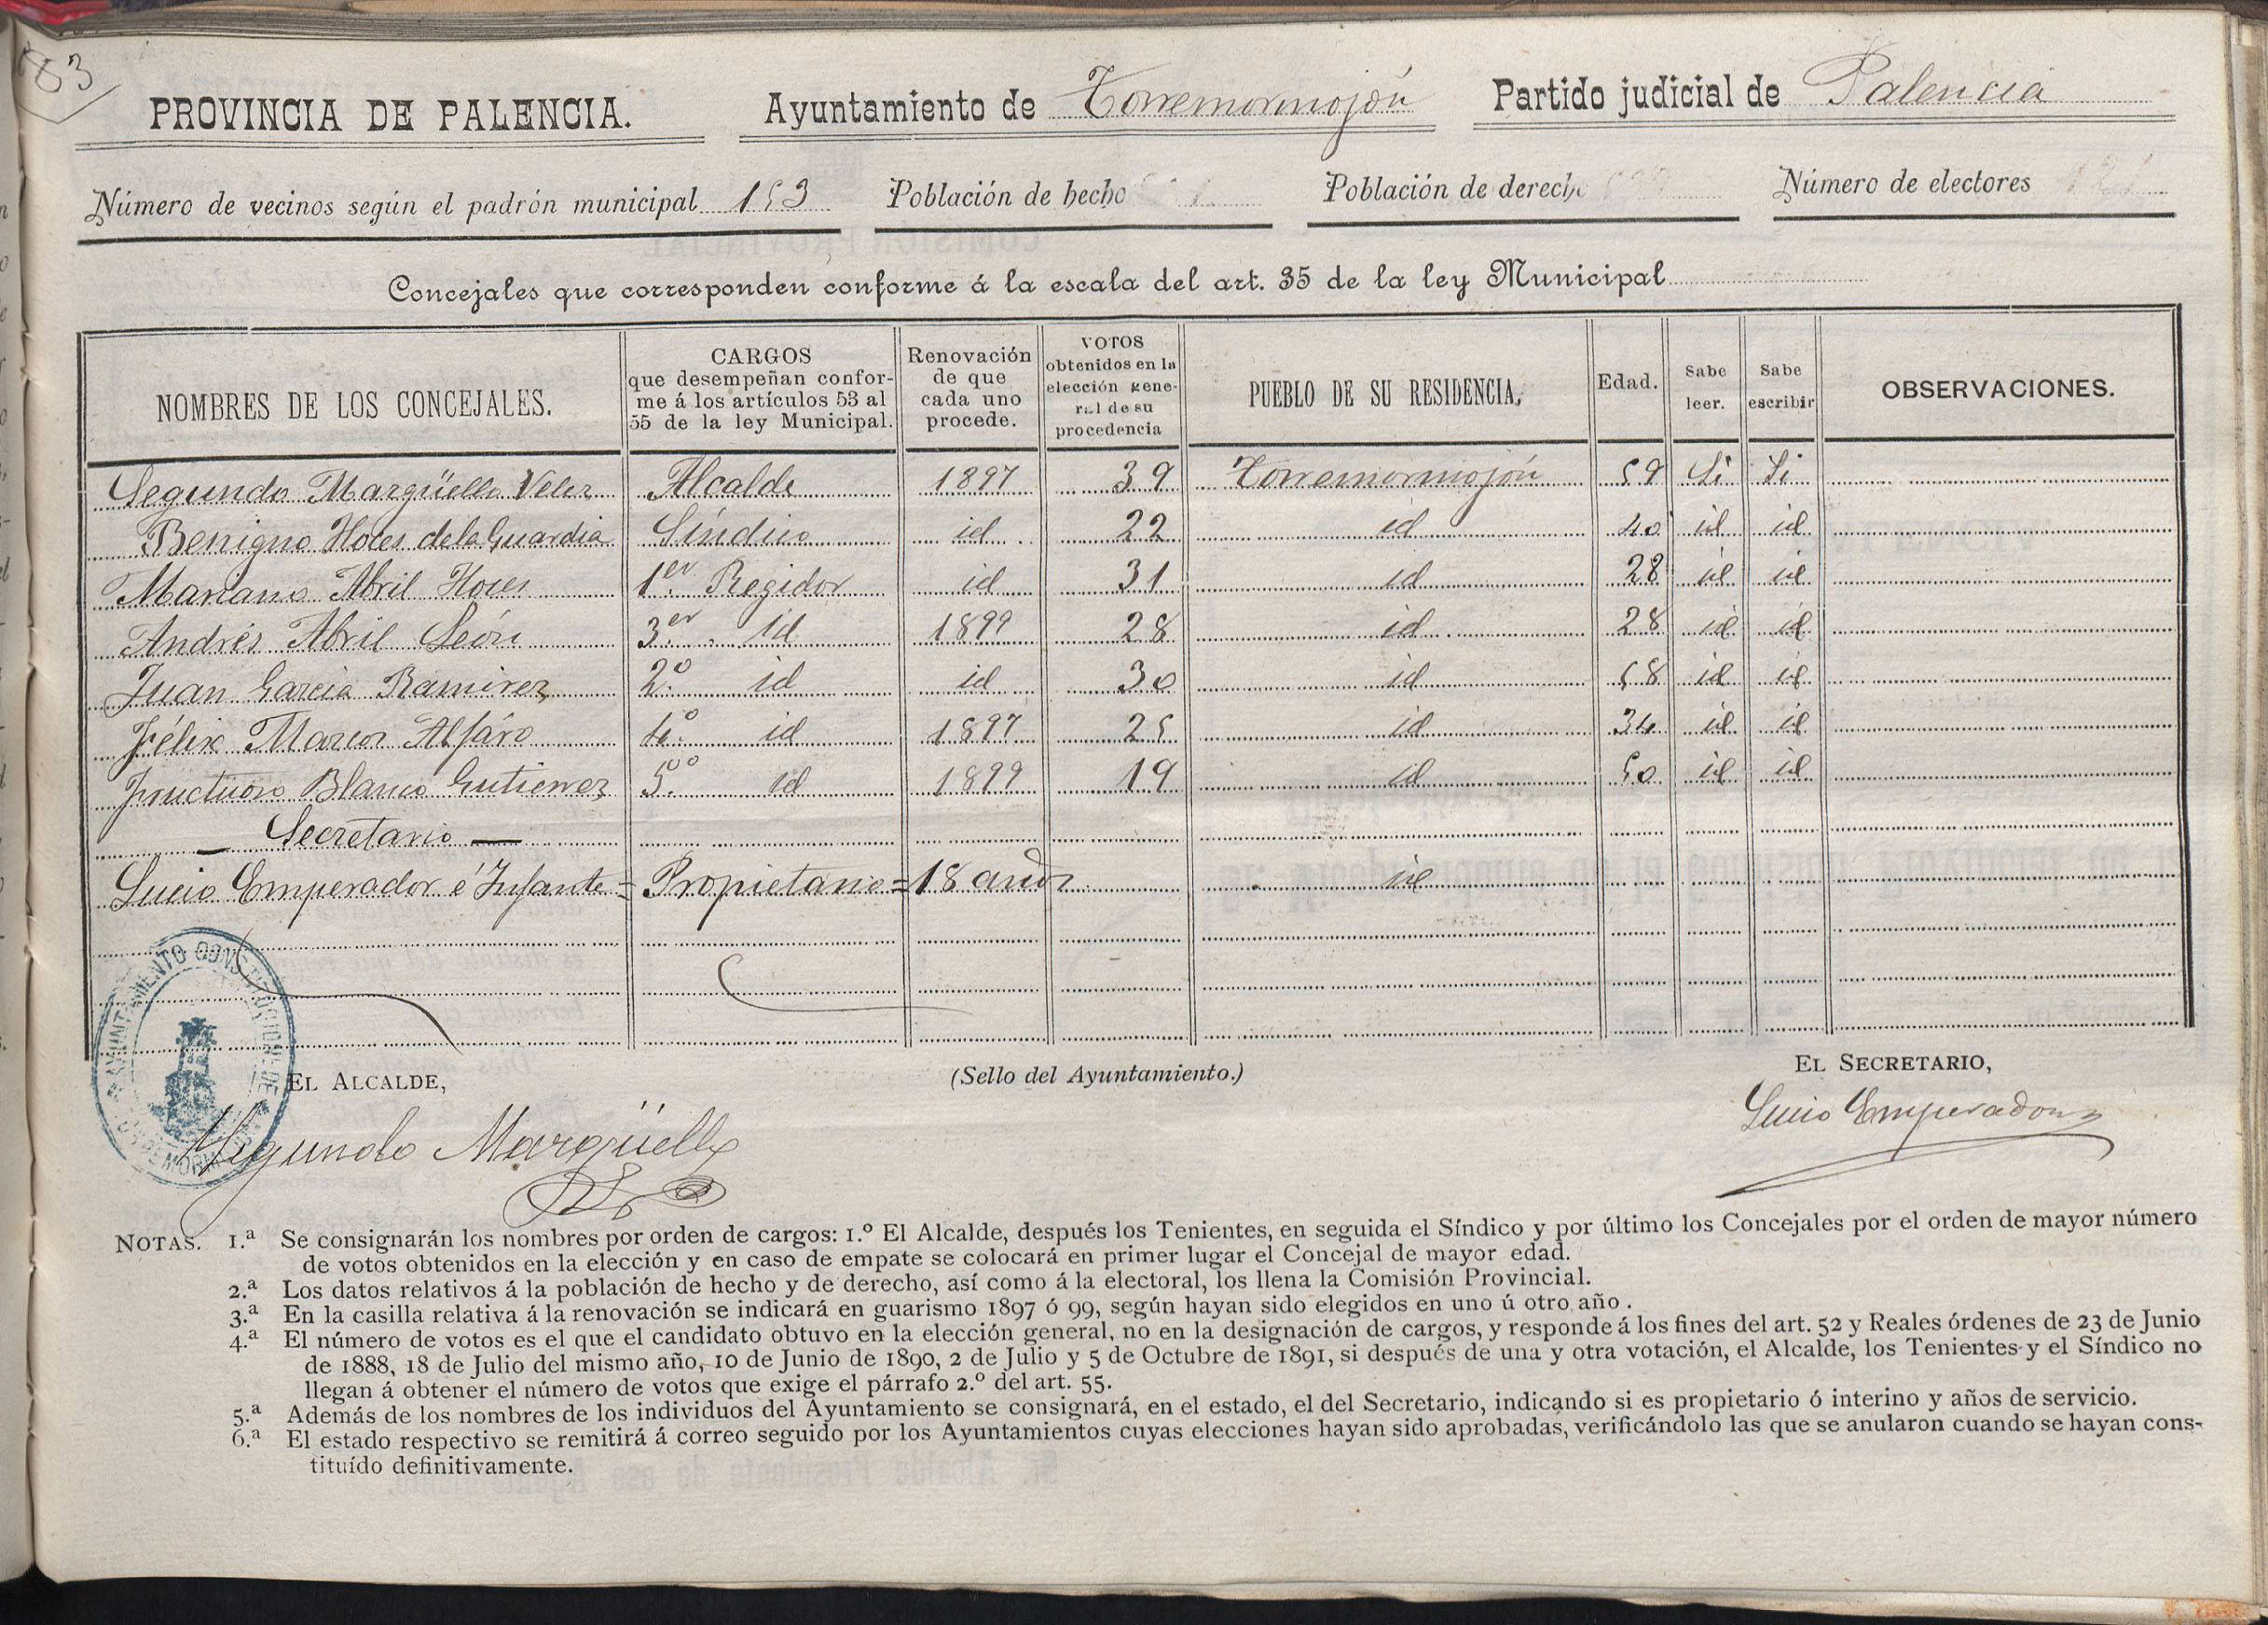 83
PROVINCIA DE PALENCIA. Ayuntamiento de Torremormojón Partido judicial de Palencia
Número de vecinos según el padrón municipal 153 Población de hecho Población de derecho Número de electores
Concejales que corresponden conforme á la escala del art. 35 de la ley Municipal
NOMBRES DE LOS CONCEJALES. CARGOS que desempeñan conforme á los artículos 53 al 55 de la ley Municipal. Renovación de que cada uno procede. VOTOS obtenidos en la elección general de su procedencia PUEBLO DE SU RESIDENCIA. Edad. Sabe leer. Sabe escribir OBSERVACIONES.
Segundo Margüello Velez Alcalde 1897 39 Torremormojón 59 Si Si
Benigno Hoces de la Guardia Síndico id 22 id 40 id id
Mariano Abril Hoces 1er Regidor id 31 id 28 id id
Andrés Abril León 3er id 1899 28 id 28 id id
Juan Garcia Ramirez 2º id id 30 id 58 id id
Félix Marcos Alfáro 4º id 1897 25 id 34 id id
Fructuoso Blanco Gutierrez 5º id 1899 19 id 50 id id
— Secretario —
Lucio Emperador é Infante = Propietario = 18 años id
AYUNTAMIENTO CONSTITUCIONAL DE TORREMORMOJON
EL ALCALDE, (Sello del Ayuntamiento.) EL SECRETARIO,
Segundo Margüello Lucio Emperador
NOTAS. 1.ª Se consignarán los nombres por orden de cargos: 1.º El Alcalde, después los Tenientes, en seguida el Síndico y por último los Concejales por el orden de mayor número
de votos obtenidos en la elección y en caso de empate se colocará en primer lugar el Concejal de mayor edad.
2.ª Los datos relativos á la población de hecho y de derecho, así como á la electoral, los llena la Comisión Provincial.
3.ª En la casilla relativa á la renovación se indicará en guarismo 1897 ó 99, según hayan sido elegidos en uno ú otro año.
4.ª El número de votos es el que el candidato obtuvo en la elección general, no en la designación de cargos, y responde á los fines del art. 52 y Reales órdenes de 23 de Junio
de 1888, 18 de Julio del mismo año, 10 de Junio de 1890, 2 de Julio y 5 de Octubre de 1891, si después de una y otra votación, el Alcalde, los Tenientes y el Síndico no
llegan á obtener el número de votos que exige el párrafo 2.º del art. 55.
5.ª Además de los nombres de los individuos del Ayuntamiento se consignará, en el estado, el del Secretario, indicando si es propietario ó interino y años de servicio.
6.ª El estado respectivo se remitirá á correo seguido por los Ayuntamientos cuyas elecciones hayan sido aprobadas, verificándolo las que se anularon cuando se hayan cons-
tituído definitivamente.